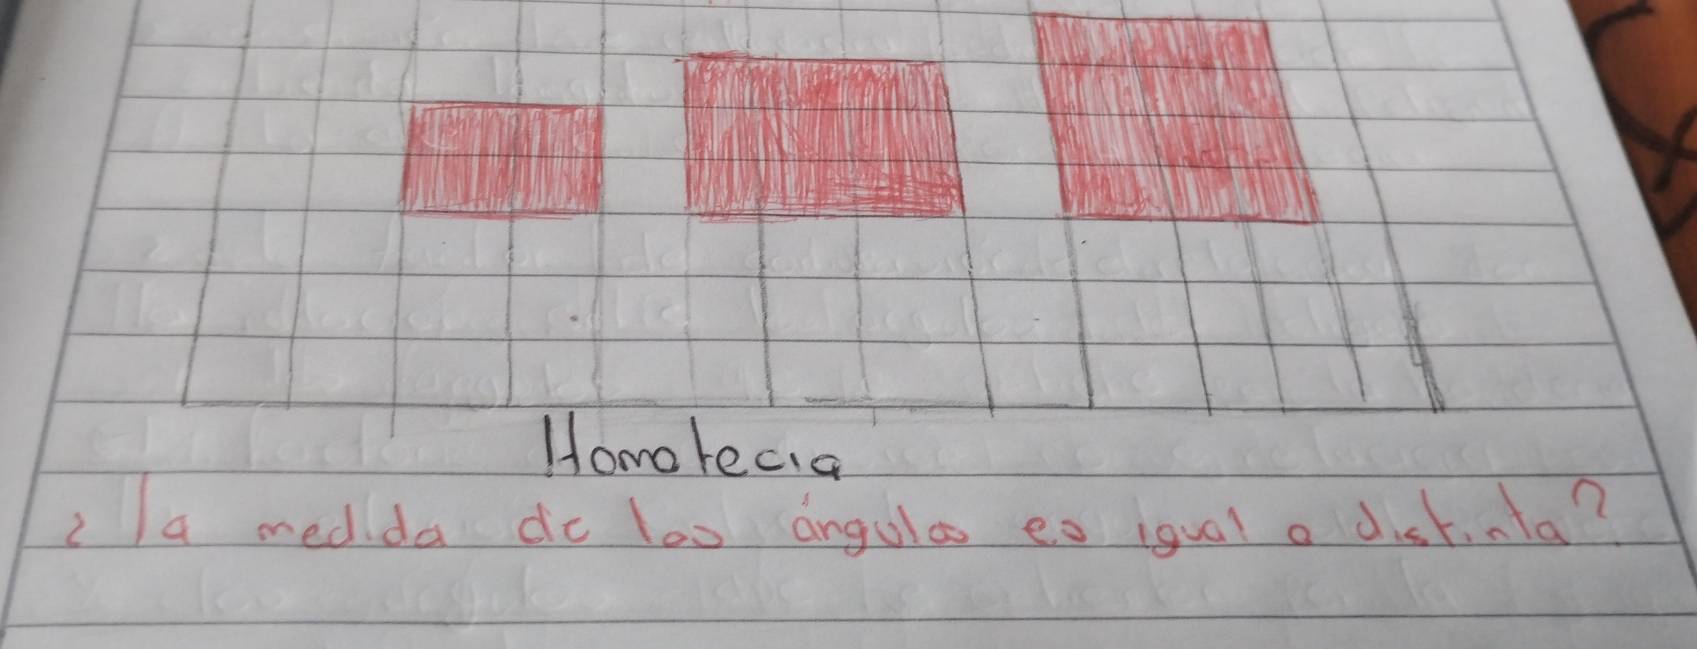 Homotecia
¿la medida de los ángulos es igual o distinta?